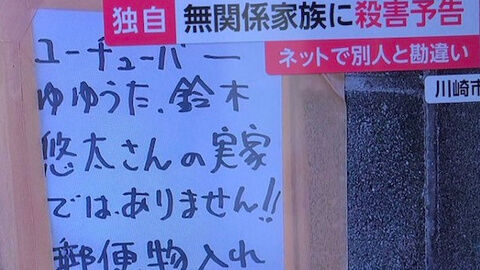 独自
無関係家族に殺害予告
ネットで別人と勘違い
川崎市
ユーチューバー
ゆゆうた、鈴木
悠太さんの実家
ではありません!!
郵便物入れ